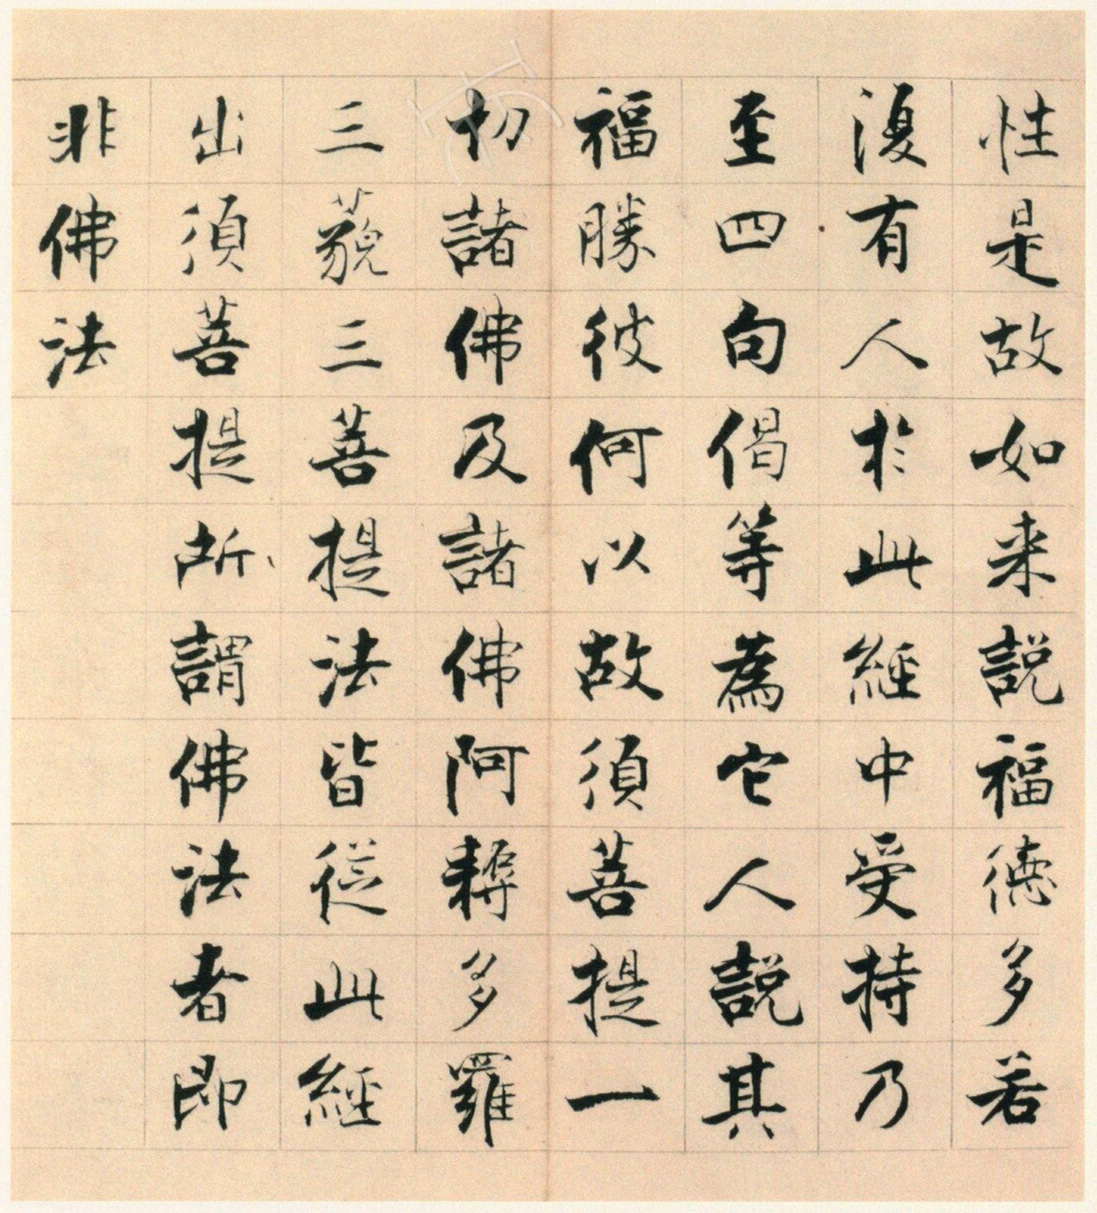 性是故如来說福德多若
復有人於此經中受持乃
至四句偈等為它人說其
福勝彼何以故須菩提一
切諸佛及諸佛阿耨多羅
三藐三菩提法皆從此經
出須菩提所謂佛法者即
非佛法